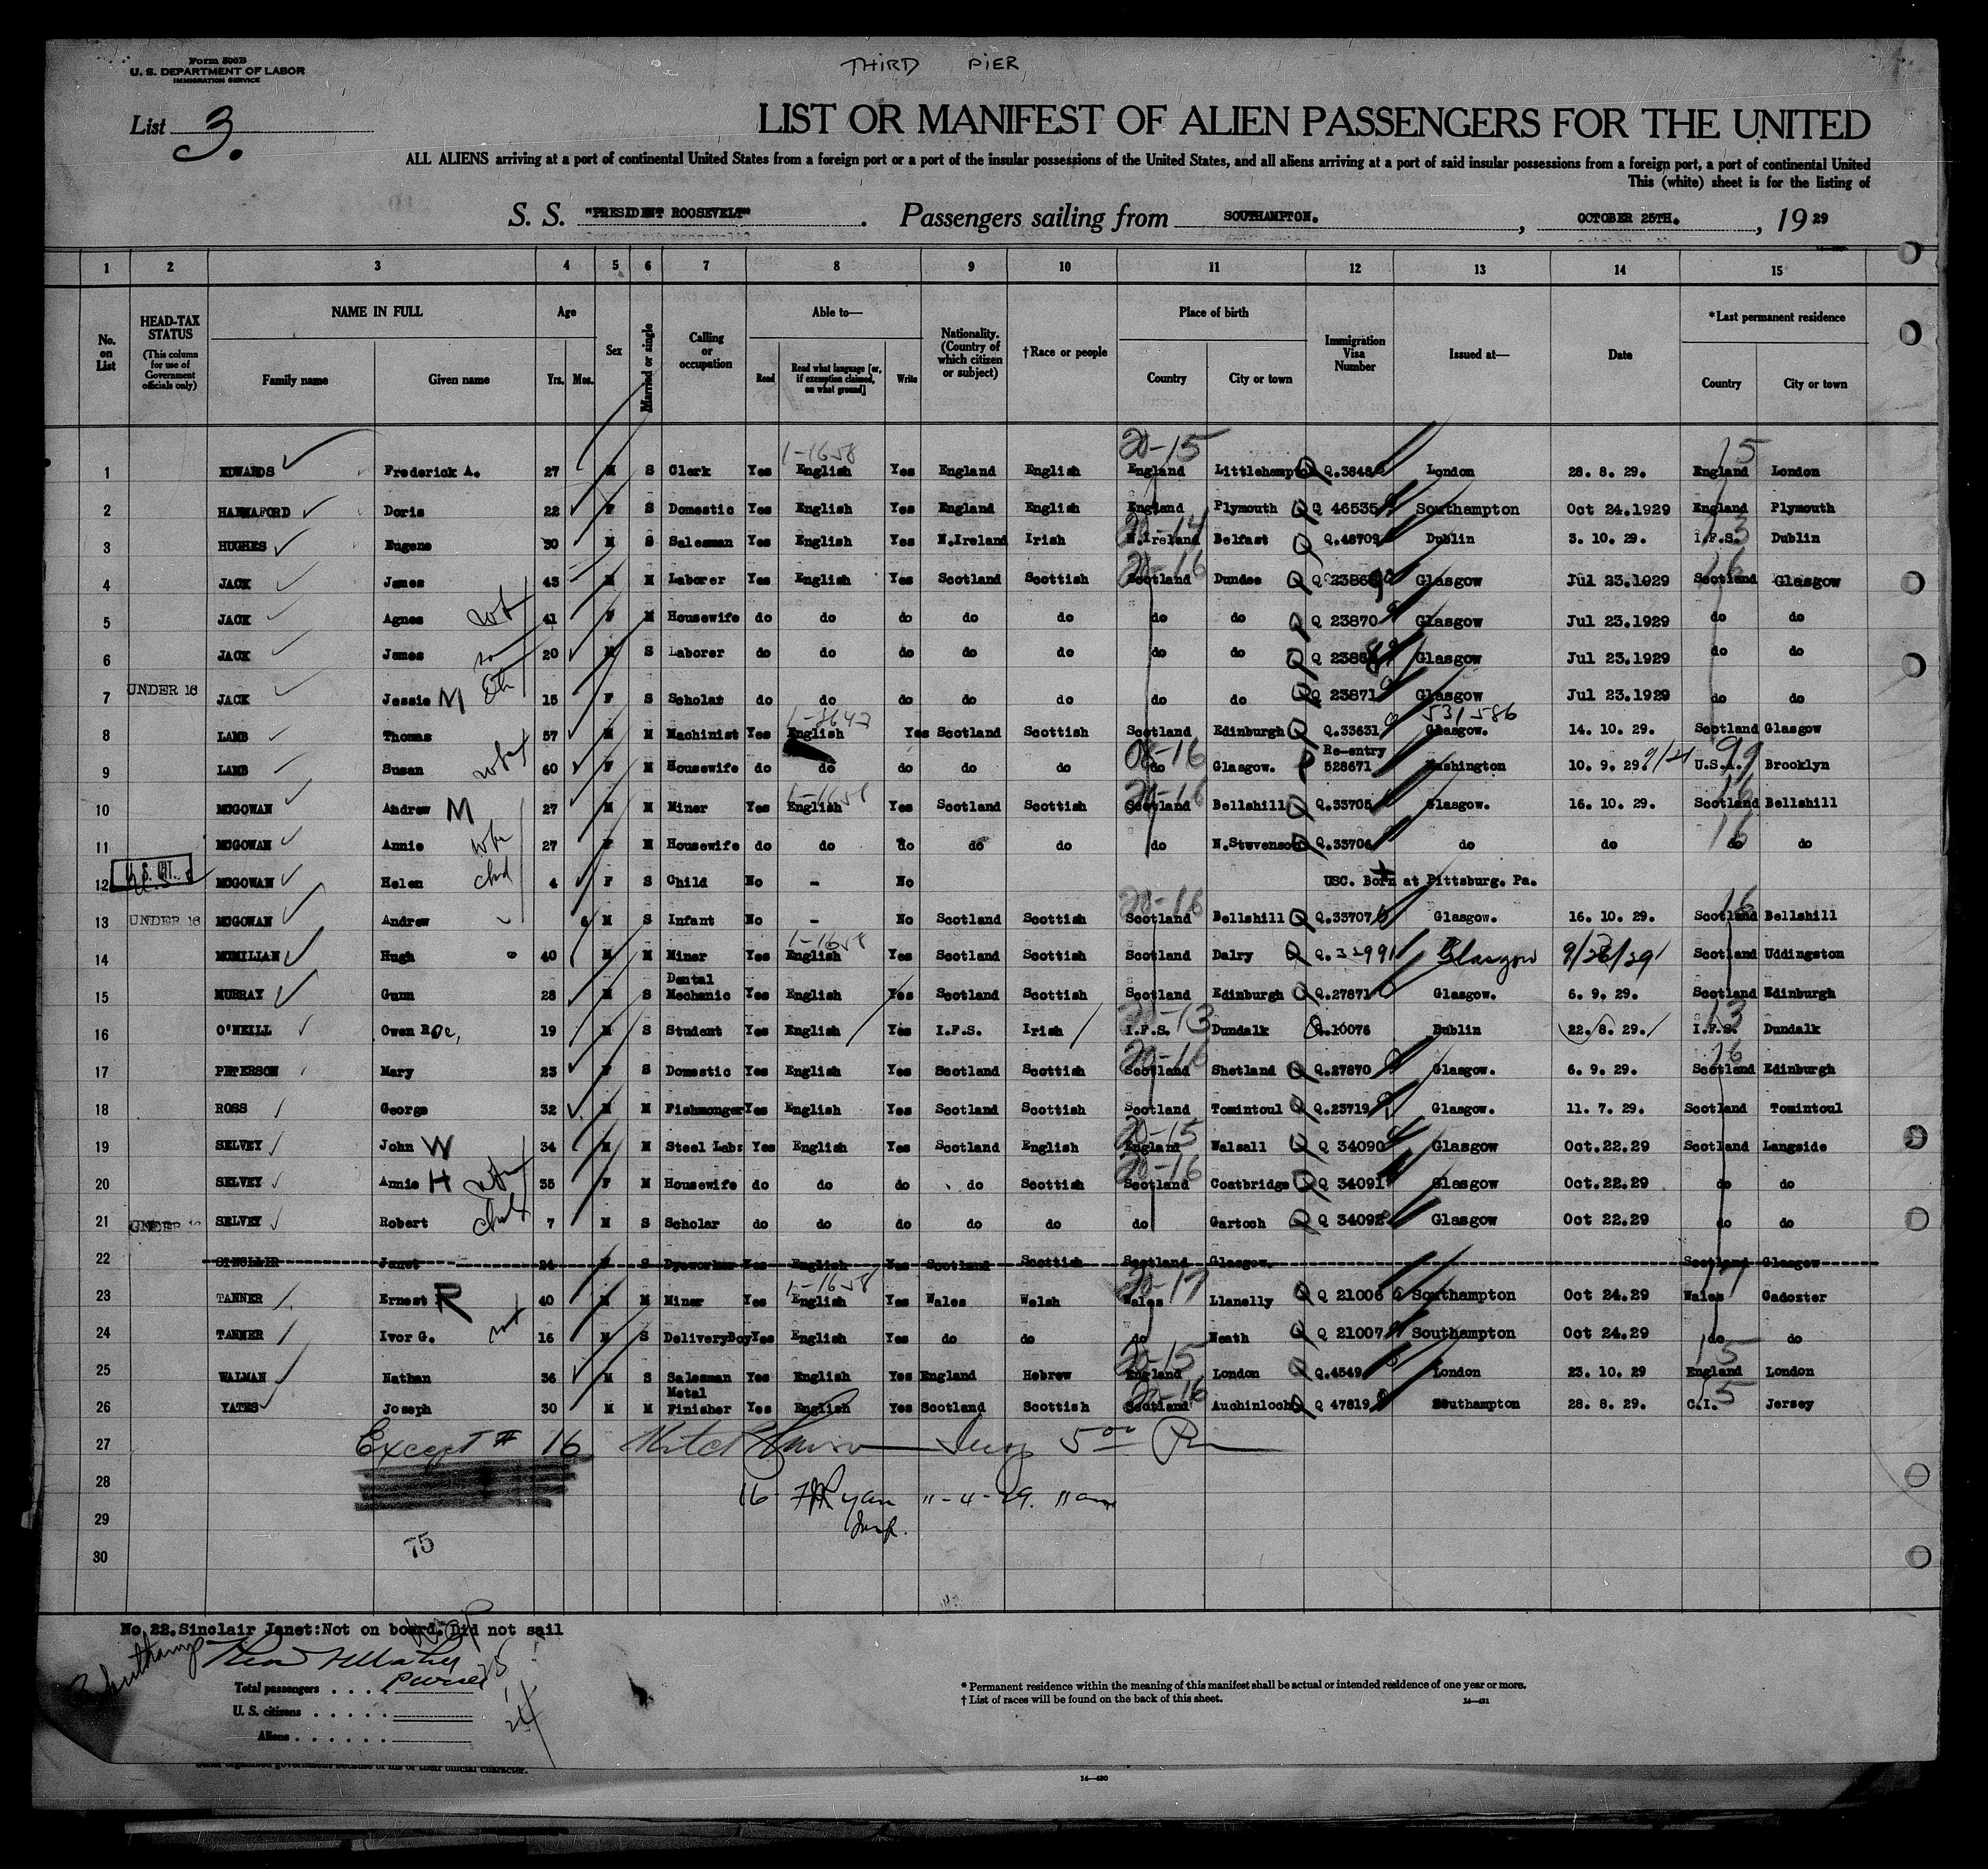 Form 500B
U. S. DEPARTMENT OF LABOR
IMMIGRATION SERVICE
THIRD PIER
List 3.
LIST OR MANIFEST OF ALIEN PASSENGERS FOR THE UNITED
ALL ALIENS arriving at a port of continental United States from a foreign port or a port of the insular possessions of the United States, and all aliens arriving at a port of said insular possessions from a foreign port, a port of continental United
This (white) sheet is for the listing of
S. S. "PRESIDENT ROOSEVELT". Passengers sailing from SOUTHAMPTON., OCTOBER 25TH., 19 29
1 2 3 4 5 6 7 8 9 10 11 12 13 14 15
No. on List
HEAD-TAX STATUS (This column for use of Government officials only)
NAME IN FULL Family name Given name
Age Yrs. Mos.
Sex
Married or single
Calling or occupation
Able to— Read Read what language [or, if exemption claimed, on what ground] Write
Nationality. (Country of which citizen or subject)
†Race or people
Place of birth Country City or town
Immigration Visa Number
Issued at—
Date
*Last permanent residence Country City or town
20-15 15
1-1658
1 EDWARDS Frederick A. 27 M S Clerk Yes English Yes England English England Littlehampton Q.3848 London 28. 8. 29. England London
2 HANNAFORD Doris 22 F S Domestic Yes English Yes England English England Plymouth Q 46535 Southampton Oct 24.1929 England Plymouth
20-14 13
3 HUGHES Eugene 30 M S Salesman Yes English Yes N.Ireland Irish N.Ireland Belfast Q.48709 Dublin 3. 10. 29. I.F.S. Dublin
20-16 16
4 JACK James 43 M M Laborer Yes English Yes Scotland Scottish Scotland Dundee Q 23869 Glasgow Jul 23.1929 Scotland Glasgow
5 JACK Agnes 41 F M Housewife do do do do do do do Q 23870 Glasgow Jul 23.1929 do do
6 JACK James 20 M S Laborer do do do do do do do Q Glasgow Jul 23.1929 do do
7 UNDER 16 JACK Jessie M 15 F S Scholar do do do do do do do Q 23871 Glasgow Jul 23.1929 do do
531586
8 LAMB Thomas 57 M M Machinist Yes English Yes Scotland Scottish Scotland Edinburgh Q.33631 Glasgow. 14. 10. 29. Scotland Glasgow
99
9 LAMB Susan 60 F M Housewife do do do do do do Glasgow. Re-entry 528671 Washington 10. 9. 29. U.S.A. Brooklyn
1-1658 20-16 16
10 MCGOWAN Andrew M 27 M M Miner Yes English Yes Scotland Scottish Scotland Bellshill Q.33705 Glasgow. 16. 10. 29. Scotland Bellshill
16
11 MCGOWAN Annie 27 F M Housewife do do do do do do N.Stevenson Q.33706 do do do do
12 U.S. CIT. MCGOWAN Helen 4 F S Child No - No USC. Born at Pittsburg. Pa.
20-16 16
13 UNDER 16 MCGOWAN Andrew 6 M S Infant No - No Scotland Scottish Scotland Bellshill Q.33707 Glasgow. 16. 10. 29. Scotland Bellshill
1-1658
14 MCMILIAN Hugh 40 M M Miner Yes English Yes Scotland Scottish Scotland Dalry Glasgow 9/26/29 Scotland Uddingston
15 MURRAY Gunn 28 M S Dental Mechanic Yes English Yes Scotland Scottish Scotland Edinburgh Q.27871 Glasgow. 6. 9. 29. Scotland Edinburgh
20-13 13
16 O'NEILL Owen 19 M S Student Yes English Yes I.F.S. Irish I.F.S. Dundalk Q.10076 Dublin 22. 8. 29. I.F.S. Dundalk
20-16 16
17 PETERSON Mary 23 F S Domestic Yes English Yes Scotland Scottish Scotland Shetland Q.27870 Glasgow. 6. 9. 29. Scotland Edinburgh
18 ROSS George 32 M M Fishmonger Yes English Yes Scotland Scottish Scotland Tomintoul Q.23719 Glasgow. 11. 7. 29. Scotland Tomintoul
20-15
19 SELVEY John W 34 M M Steel Labr Yes English Yes Scotland English England Walsall Q 34090 Glasgow Oct.22.29 Scotland Langside
20-16
20 SELVEY Annie H 35 F M Housewife do do do do Scottish Scotland Coatbridge Q 34091 Glasgow Oct.22.29 do do
21 UNDER 16 SELVEY Robert 7 M S Scholar do do do do do do Gartoch Q 34092 Glasgow Oct 22.29 do do
22 Janet 24 F S Dyeworker Yes English Yes Scotland Scottish Scotland Glasgow Scotland Glasgow
1-1658 20-17 17
23 TANNER Ernest R 40 M M Miner Yes English Yes Wales Welsh Wales Llanelly Q 21006 Southampton Oct 24.29 Wales Cadoxter
24 TANNER Ivor G. 16 M S DeliveryBoy Yes English Yes do do do Neath Q 21007 Southampton Oct 24.29 do do
20-15 15
25 WALMAN Nathan 36 M S Salesman Yes English Yes England Hebrew England London Q.4549 London 23. 10. 29 England London
20-16 5
26 YATES Joseph 30 M M Metal Finisher Yes English Yes Scotland Scottish Scotland Auchinloch Q 47819 Southampton 28. 8. 29. C.I. Jersey
27 Except # 16
28 16 Ryan 11-4-29. 11 am
29 Insp.
30 75
No 22.Sinclair Janet:Not on board. Did not sail
Purser
Total passengers
U. S. citizens
Aliens
* Permanent residence within the meaning of this manifest shall be actual or intended residence of one year or more.
† List of races will be found on the back of this sheet.
14—421
14—420